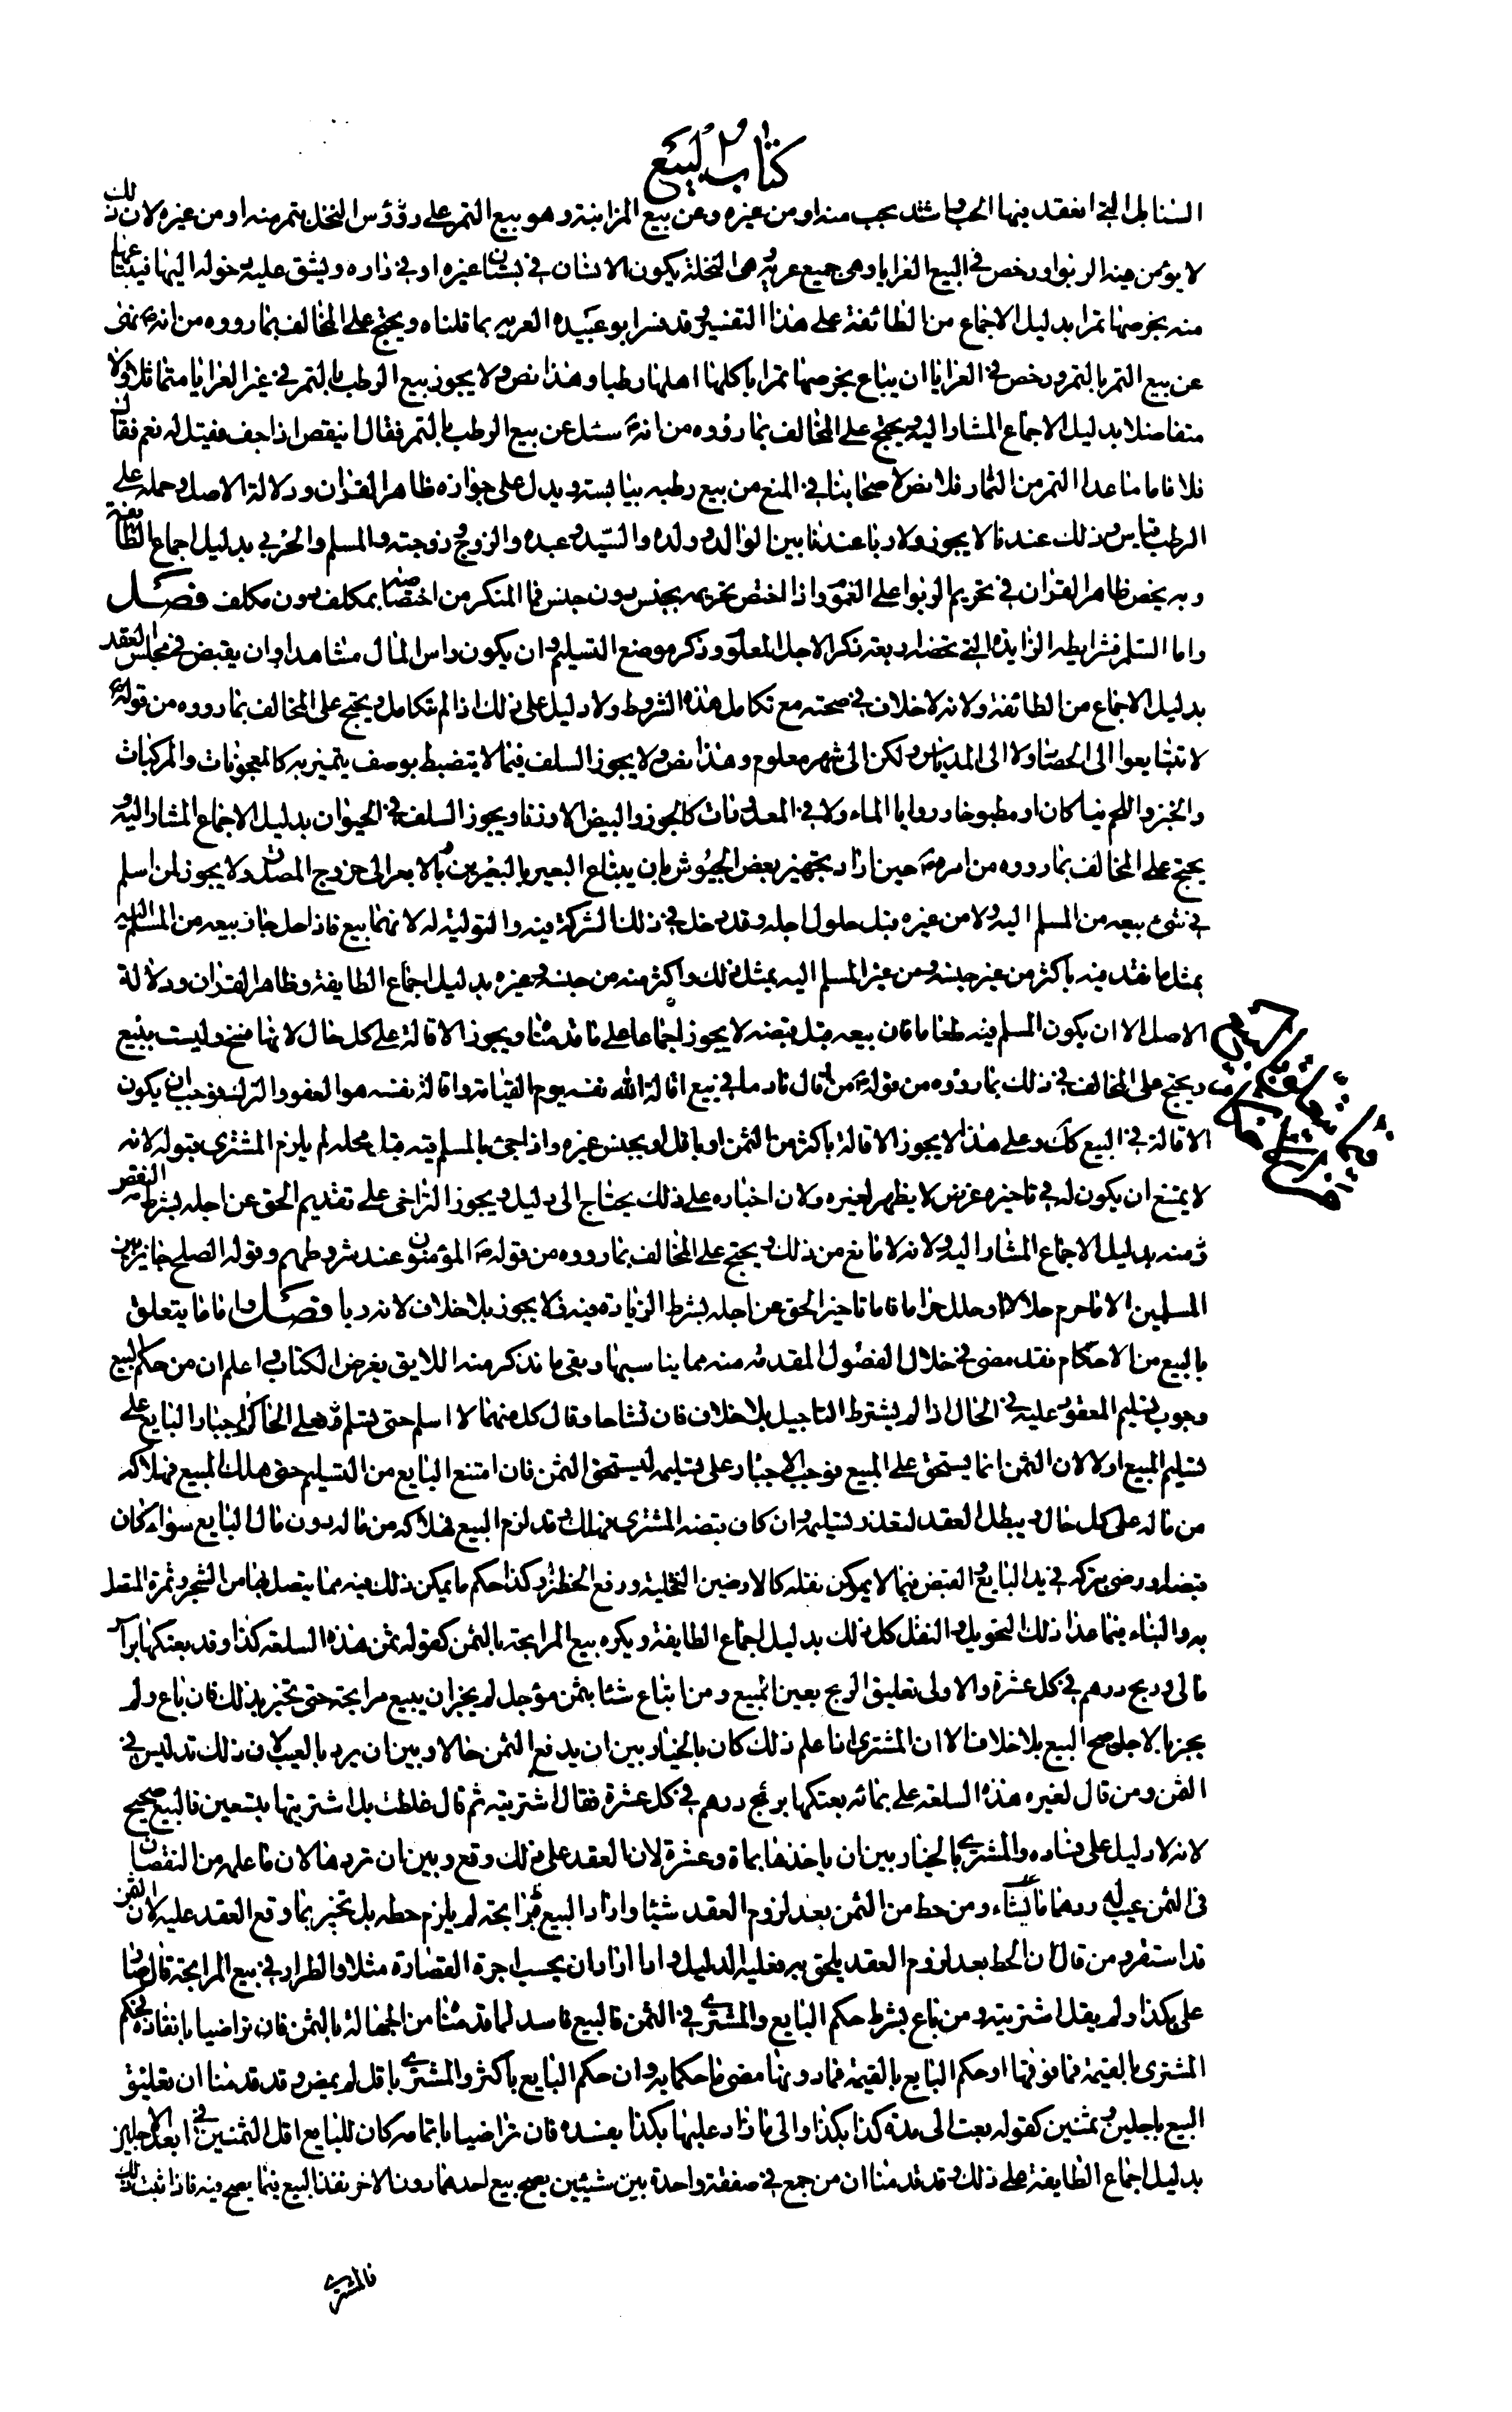 كتاب البيع
السنابل التي انعقد فيها الحب واشتد بحب منه او من غيره وعن بيع المزابنة وهو بيع التمر على رؤس النخل بتمر منه او من غيره لان ذلك
لا يؤمن فيه الربوا ورخص في البيع العرايا وهي جمع عرية وهي النخلة يكون لانسان في بستان غيره او في داره ويشق عليه دخوله اليها فيبتاعها
منه بخرصها تمرا بدليل الاجماع من الطائفة على هذا التفسير وقد فسر ابو عبيده العريه بما قلناه ويحتج على المخالف بما رووه من انه نهى
عن بيع التمر بالتمر ورخص في العرايا ان يبتاع بخرصها تمرا ياكلها اهلها رطبا وهذا نص ولا يجوز بيع الرطب بالتمر في غير العرايا متماثلا ولا
متفاضلا بدليل الاجماع المشار اليه ويحتج على المخالف بما رووه من انه سئل عن بيع الرطب بالتمر فقال اينقص اذا جف فقيل له نعم فقال
فلا فاما ما عدا التمر من الثمار فلا نص لاصحابنا في المنع من بيع رطبه بيابسه ويدل على جوازه ظاهر القران ودلالة الاصل وحمله على
الرطب قياس وذلك عندنا لا يجوز ولا ربا عندنا بين الوالد وولده والسيد وعبده والزوج وزوجته والمسلم والحربي بدليل اجماع الطائفة
وبه يخص ظاهر القران في تحريم الربوا على العموم واذا اختص تحريمه بجنس دون جنس فما المنكر من اختصاصه بمكلف دون مكلف فصل
واما السلم فشرايطه الزايدة التي تخصه اربعة ذكر الاجل المعلوم وذكر موضع التسليم وان يكون راس المال مشاهدا وان يقبض في مجلس العقد
بدليل الاجماع من الطائفة ولانه لا خلاف في صحته مع تكامل هذه الشروط ولا دليل على ذلك اذا لم تتكامل ويحتج على المخالف بما رووه من قوله
لا تتبايعوا الى الحصاد ولا الى الدياس ولكن الى شهر معلوم وهذا نص ولا يجوز السلف فيما لا ينضبط بوصف يتميز به كالمعجونات والمركبات
والخبز واللحم نيا كان او مطبوخا وروايا الماء ولا في المعدودات كالجوز والبيض الا وزنا ويجوز السلف في الحيوان بدليل الاجماع المشار اليه و
يحتج على المخالف بما رووه من امره حين اراد تجهيز بعض الجيوش بان يبتاع البعير بالبعيرين وبالابعر الى خروج المصدق ولا يجوز لمن اسلم
في شئ بيعه من المسلم اليه ولا من غيره قبل حلول اجله وقد دخل في ذلك الشركة فيه والتولية له لانهما بيع فاذا حل جاز بيعه من المسلم اليه
بمثل ما نقد فيه باكثر من غير جنسه ومن غير المسلم اليه بمثل ذلك واكثر منه من جنسه وغيره بدليل اجماع الطايفة وظاهر القران ودلالة
الاصل الا ان يكون المسلم فيه طعاما فان بيعه قبل قبضه لا يجوز اجماعا على ما قدمناه ويجوز الاقالة على كل حال لانها فسخ وليست ببيع
ويحتج على المخالف في ذلك بما رووه من قوله من اقال نادما في بيع اقاله الله نفسه يوم القيامة واقالة نفسه هو العفو والترك فوجب ان يكون
الاقالة في البيع كك وعلى هذا لا يجوز الاقالة باكثر من الثمن او باقل او بجنس غيره واذا جئ بالمسلم فيه قبل محله لم يلزم المشتري قبوله لانه
لا يمتنع ان يكون له في تاخيره غرض لا يظهر لغيره ولان اجباره على ذلك يحتاج الى دليل ويجوز التراخى على تقديم الحق عن اجله بشرط النقص
منه بدليل الاجماع المشار اليه ولانه لا مانع من ذلك ويحتج على المخالف بما رووه من قوله المؤمنون عند شروطهم وقوله الصلح جايز بين
المسلمين الا ما حرم حلالا او حلل حراما فاما تاخير الحق عن اجله بشرط الزيادة فيه فلا يجوز بلا خلاف لانه ربا فصل واما ما يتعلق
بالبيع من الاحكام فقد مضى في خلال الفصول المقدمه منه مما يناسبها وبقي ما نذكر منه اللايق بغرض الكتاب واعلم ان من حكم البيع
وجوب تسليم المعقود عليه في الحال اذا لم يشترط التاجيل بلا خلاف فان تشاحا وقال كل منهما لا اسلم حتى يتسلم فعلى الحاكم اجبار البايع على
تسليم المبيع اولا لان الثمن انما يستحق على المبيع فوجب الاجبار على تسليمه ليستحق الثمن فان امتنع البايع من التسليم حتى هلك المبيع فهلاكه
من ماله على كل حال ويبطل العقد لتعذر تسليمه وان كان قبضه المشتري فهلك وقد لزم البيع فهلاكه من ماله دون مال البايع سواء كان
قبضه او رضي بتركه في يد البايع والقبض فيما لا يمكن نقله كالارضين التخلية ورفع الحظر وكذا حكم ما يمكن ذلك فيه مما يتصل بها من الشجر وثمرة المتصل
به والبناء فيما عدا ذلك التحويل والنقل كل ذلك بدليل اجماع الطايفة ويكره بيع المرابحة بالثمن كقوله ثمن هذه السلعه كذا وقد بعتكها برأس
مالي وربح درهم في كل عشرة والاولى تعليق الربح بعين المبيع ومن ابتاع شئا بثمن مؤجل لم يجز ان يبيع مرابحة حتى يخبر بذلك فان باع ولم
يخبر بالاجل صح البيع بلا خلاف الا ان المشتري اذا علم ذلك كان بالخيار بين ان يدفع الثمن حالا وبين ان يرد بالعيب لان ذلك تدليس في
الثمن ومن قال لغيره هذه السلعة على بمائه بعتكها بربح درهم في كل عشرة فقال اشتريته ثم قال غلطت بل اشتريتها بتسعين فالبيع صحيح
لانه لا دليل على فساده والمشتري بالخيار بين ان ياخذها بماة وعشرة لان العقد على ذلك وقع وبين ان يردها لان ما علمه من النقصان
في الثمن عيب له ردها ما يشاء ومن حط من الثمن بعد لزوم العقد شيئا واراد البيع مرابحة لم يلزم حطه بل يخبر بما وقع العقد عليه لان الثمن
قد استقر ومن قال ان الحط بعد لزوم العقد يلحق به فعليه الدليل واما اذا اراد ان يحسب اجرة القصارة مثلا والطراز في بيع المرابحة قال
على بكذا ولم يقل اشتريته ومن باع بشرط حكم البايع والمشتري في الثمن فالبيع فاسد لما قدمناه من الجهالة بالثمن فان تراضيا بانفاذه بحكم
المشترى بالقيمة فما فوقها او حكم البايع بالقيمة فما دونها مضى ما حكما به وان حكم البايع باكثر والمشتري باقل لم يمض وقد قدمنا ان تعليق
البيع باجلين وثمنين كقوله بعت الى مدة كذا بكذا والى ما زاد عليها بكذا يفسده فان تراضيا باتمامه كان للبايع اقل الثمنين في ابعد الاجلين
بدليل اجماع الطايفة على ذلك وقد قدمنا ان من جمع في صفقة واحدة بين شيئين يصح بيع احدهما دون الاخر نفذ البيع فيما يصح فيه فاذا ثبت ذلك
فالمشتري